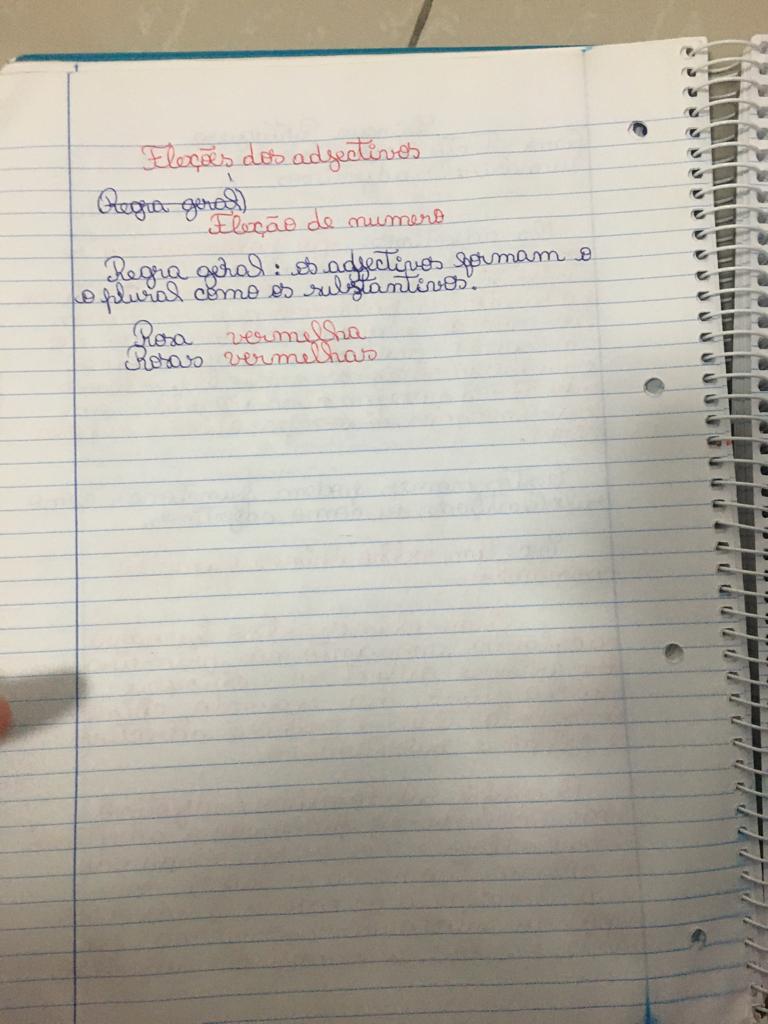 Flexões dos adjectivos
(Regra geral)
Flexão de numero
Regra geral : os adjectivos formam o
o plural como os substantivos.
Rosa vermelha
Rosas vermelhas